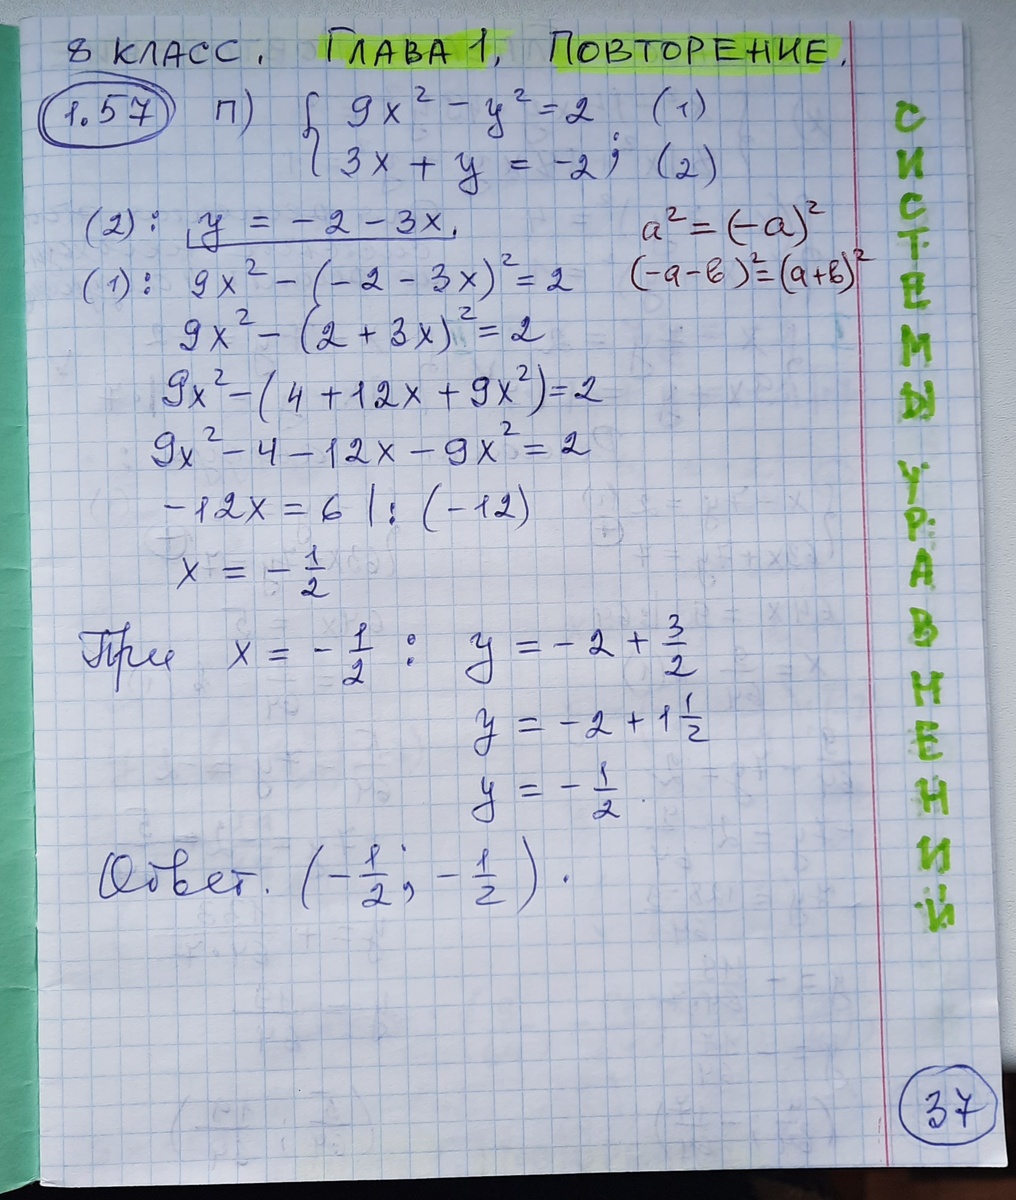 8 КЛАСС. ГЛАВА 1. ПОВТОРЕНИЕ.
1.57 п) { 9x² - y² = 2 (1)
3x + y = -2; (2)
(2): y = -2 - 3x. a² = (-a)²
(1): 9x² - (-2 - 3x)² = 2 (-a-b)² = (a+b)²
9x² - (2 + 3x)² = 2
9x² - (4 + 12x + 9x²) = 2
9x² - 4 - 12x - 9x² = 2
-12x = 6 |: (-12)
x = - 1/2
При x = - 1/2 : y = -2 + 3/2
y = -2 + 1 1/2
y = - 1/2
Ответ. (- 1/2; - 1/2).
СИСТЕМЫ УРАВНЕНИЙ
37